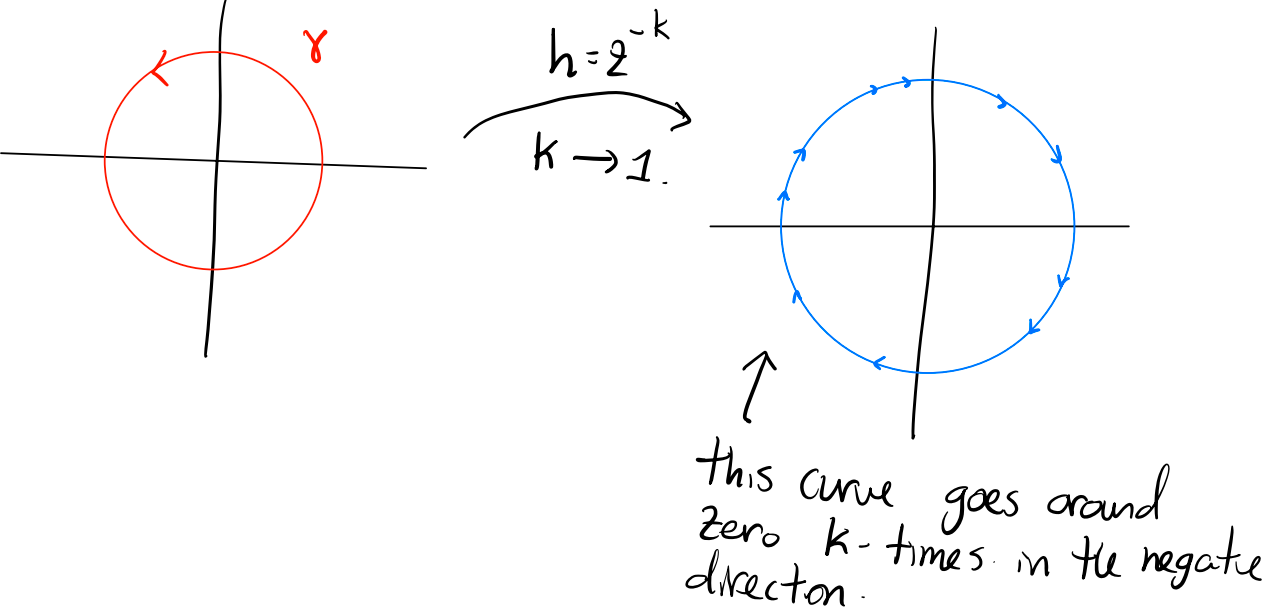 γ
h=z^{-k}
k → 1.
this curve goes around
zero k-times in the negative
direction.